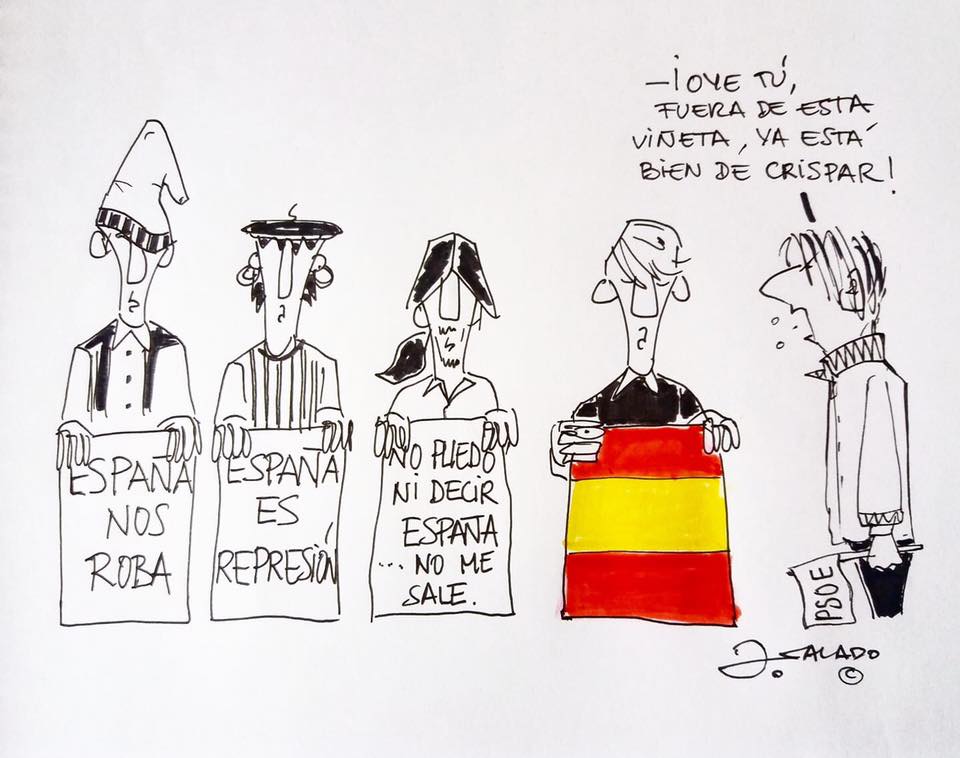 -¡OYE TÚ,
FUERA DE ESTA
VIÑETA, YA ESTÁ
BIEN DE CRISPAR!
ESPAÑA
NOS
ROBA
ESPAÑA
ES
REPRESIÓN
NO PUEDO
NI DECIR
ESPAÑA
... NO ME
SALE.
PSOE
J. SALADO
©